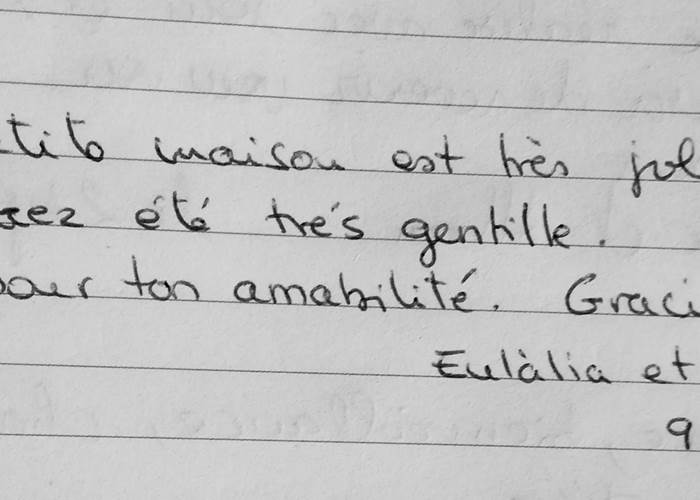 tito maison est très jol
sez été trés gentille.
our ton amabilité. Graci
Eulàlia et
9